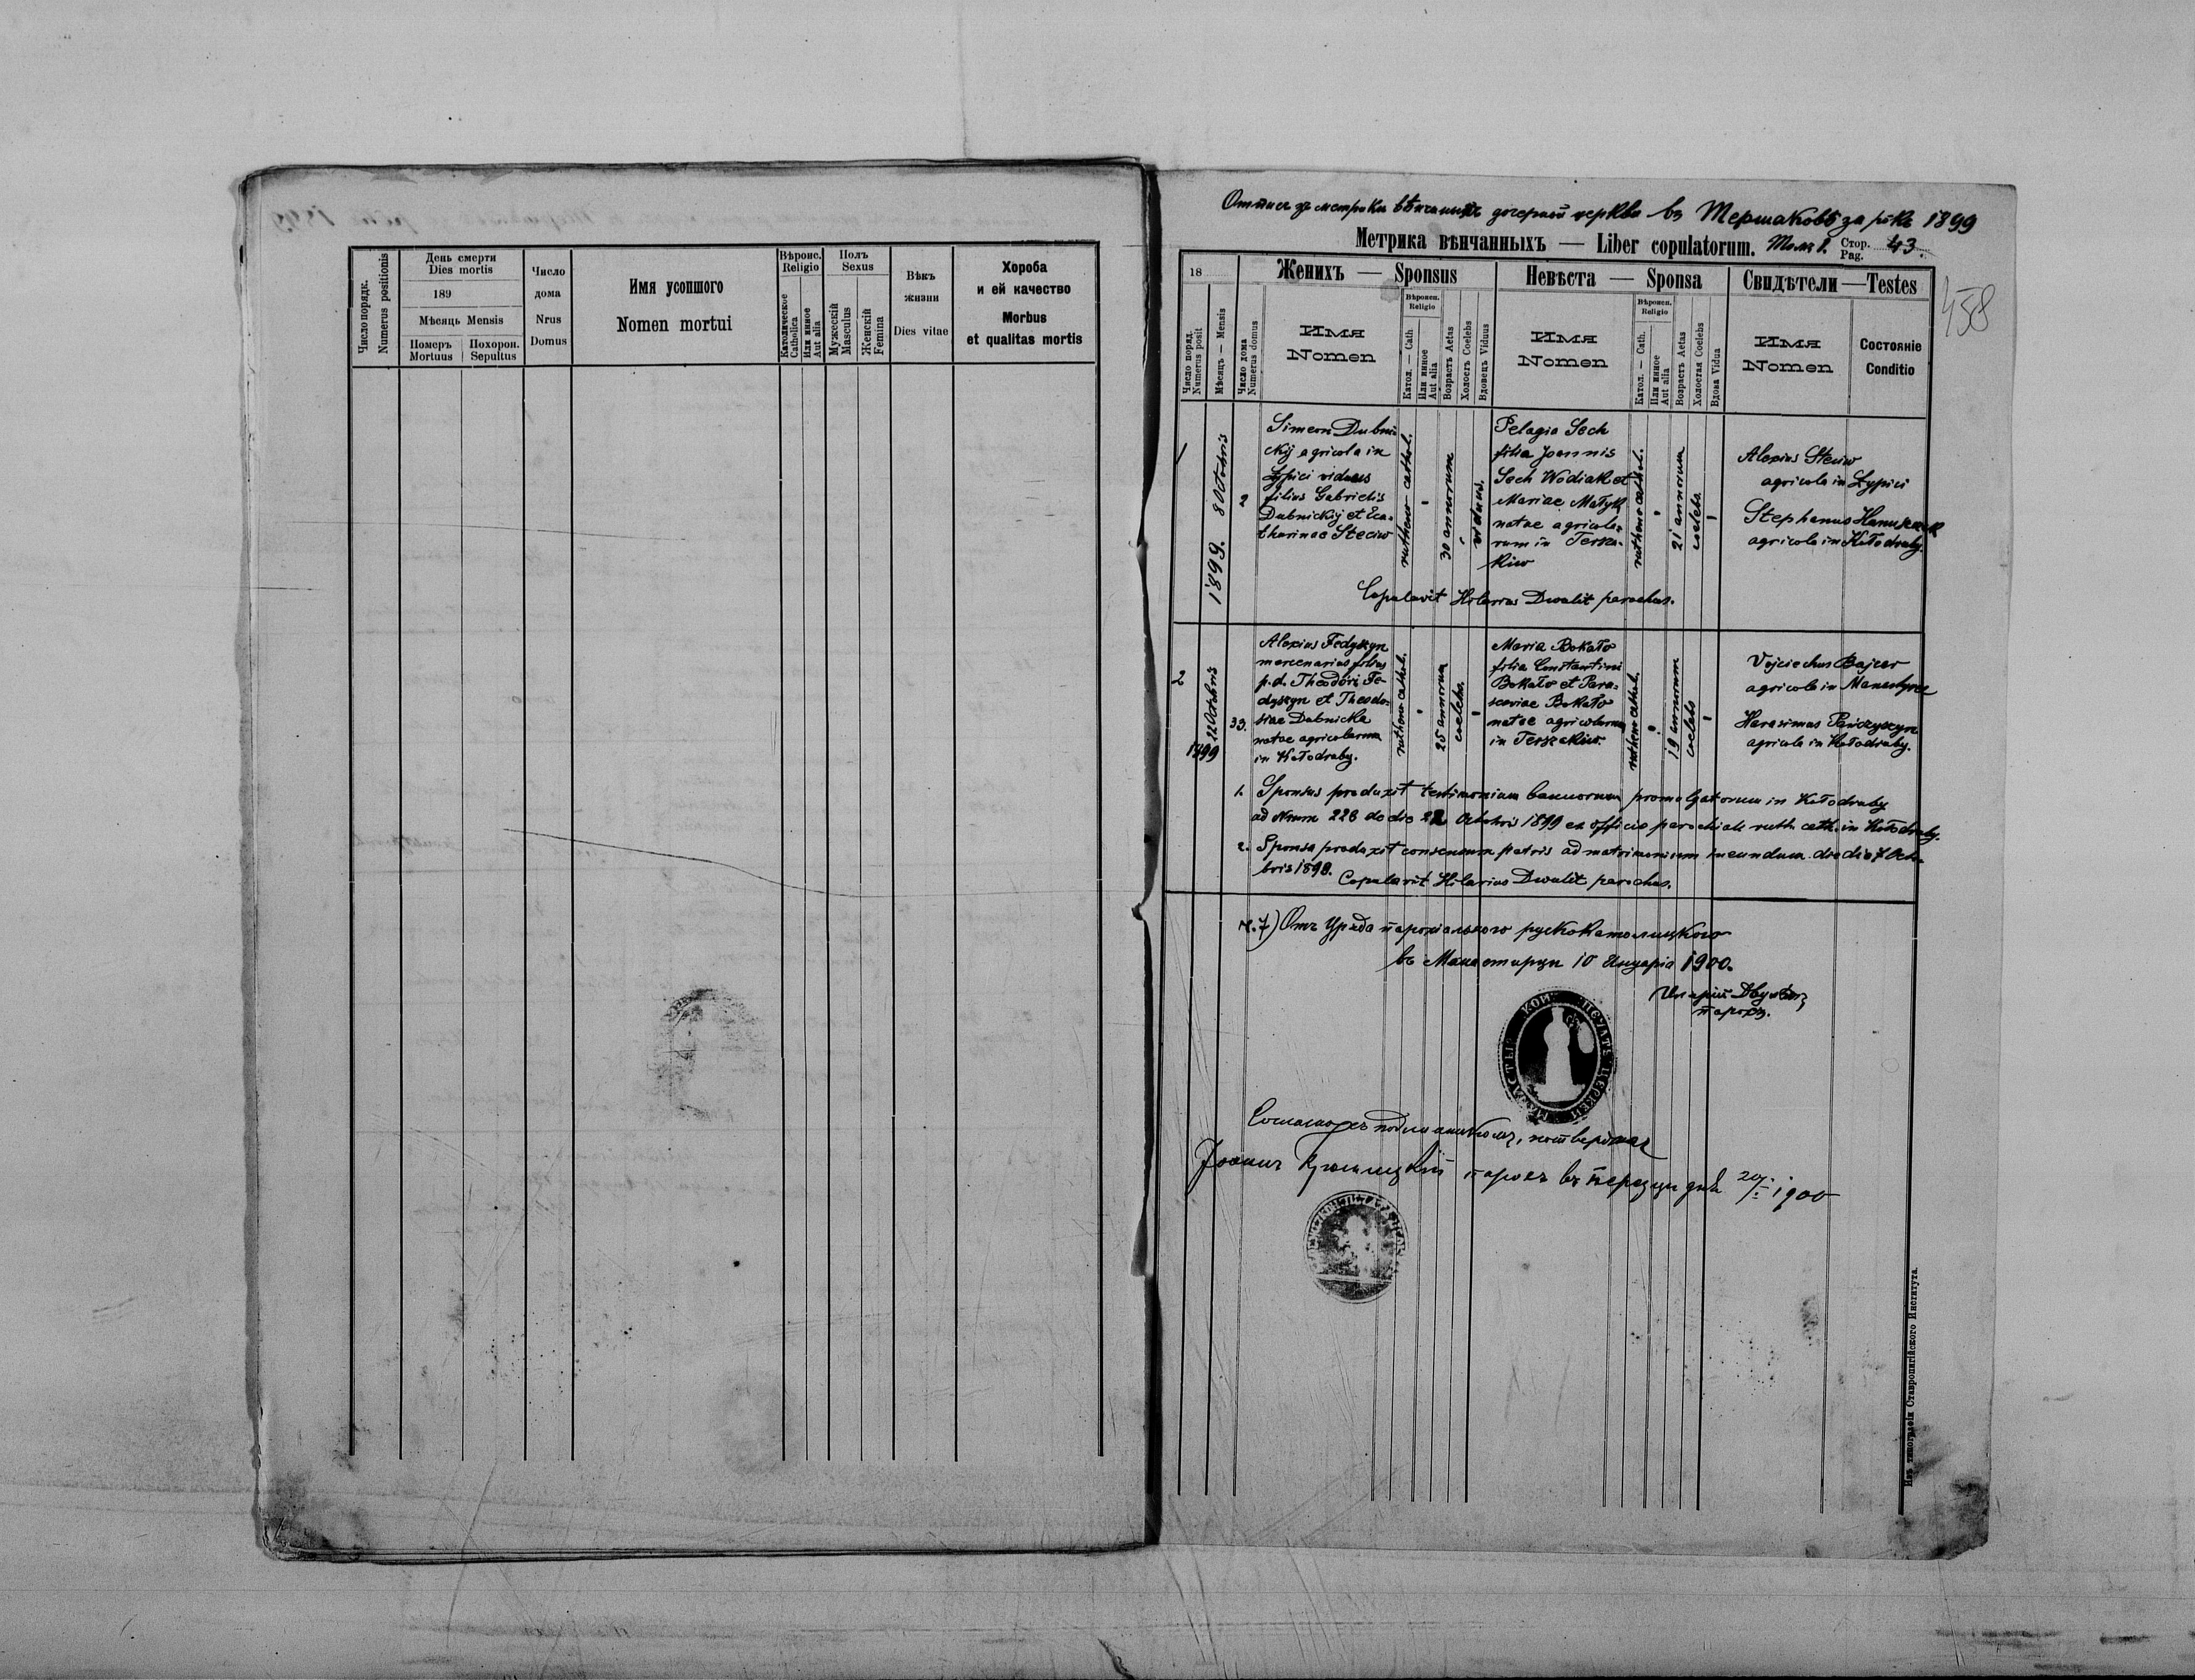 Число порядк.
Numerus positionis
День смерти
Dies mortis
189
Мѣсяць Mensis
Померъ
Mortuus
Похорон.
Sepultus
Число
дома
Nrus
Domus
Имя усопшого
Nomen mortui
Вѣроис.
Religio
Католическое
Catholica
Или инное
Aut alia
Полъ
Sexus
Мужескій
Masculus
Женскій
Femina
Вѣкъ
жизни
Dies vitae
Хороба
и ей качество
Morbus
et qualitas mortis
Отпись зъ метрики вѣнчаныхъ дочерной церкви въ Тершаковѣ за рокъ 1899
Метрика вѣнчанныхъ — Liber copulatorum. Томъ I. Стор. Pag. 43.
458
18
Женихъ — Sponsus
Невѣста — Sponsa
Свидѣтели — Testes
Число поряд.
Numerus posit
Мѣсяць — Mensis
Число дома
Numerus domus
Имя
Nomen
Вѣроисп.
Religio
Катол. — Cath
Или инное
Aut alia
Возрастъ Aetas
Холостъ Coelebs
Вдовецъ Viduus
Имя
Nomen
Вѣроисп.
Religio
Катол. — Cath.
Или инное
Aut alia
Возрастъ Aetas
Холостая Coelebs
Вдова Vidua
Имя
Nomen
Состояніе
Conditio
1
1899. 8 Octobris
2
Simeon Dubni-
ckij agricola in
Łypici viduus
filius Gabrielis
Dubnickij et Eca-
tharinae Steciw
rutheno cathol.
-
30 annorum
viduus.
Pelagia Sech
filia Joannis
Sech Wodiak et
Mariae Matyk
natae agricola-
rum in Tersza-
kiw
rutheno cathol.
21 annorum
coelebs.
Alexius Steciw
agricola in Łypici
Stephanus Hanuszczak
agricola in Kołodruby.
Copulavit Hilarius Dwulit parochus.
2
1899 22 Octobris
33
Alexius Fedyszyn
mercenarius filius
p.d. Theodori Fe-
dyszyn et Theodo-
siae Dubnicka
natae agricolarum
in Kołodruby.
rutheno cathol.
25 annorum
coelebs.
Maria Bokało
filia Constantini
Bokało et Para-
scaviae Bokało
natae agricolarum
in Terszakiw.
rutheno cathol.
19 annorum
coelebs
Wojciechus Bajcar
agricola in Manastyrec
Harasimus Pańczyszyn
agricola in Kołodruby.
1. Sponsus produxit testimonium bannorum promulgatorum in Kołodruby
ad Nrum 228 de die 22 Octobris 1899 ex officio parochiali ruth. cath. in Kołodruby.
2. Sponsa produxit consensum patris ad matrimonium ineundum de die 7 Octo-
bris 1899.
Copulavit Hilarius Dwulit parochus.
Ч. 7) Отъ Уряда парохіального рускокатолицкого
въ Манастирци 10 Януарія 1900.
Иларій Двулѣтъ
парохъ.
ПЕЧАТЬ ЦЕРКВИ
Согласно съ подлинникомъ, потверджає
парохъ въ дня 20/I 1900
Изъ типографіи Ставропигійского Института.